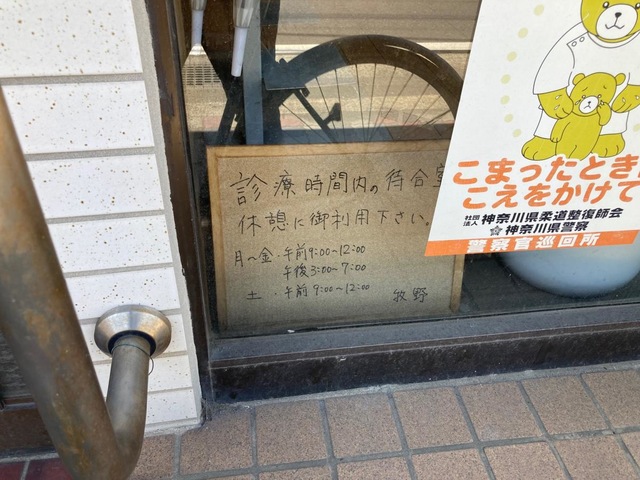 診療時間内の待合室
休憩に御利用下さい。
月〜金・午前9:00〜12:00
午後3:00〜7:00
土・午前9:00〜12:00 牧野
こまったとき
こえをかけて
社団法人 神奈川県柔道整復師会
神奈川県警察
警察官巡回所